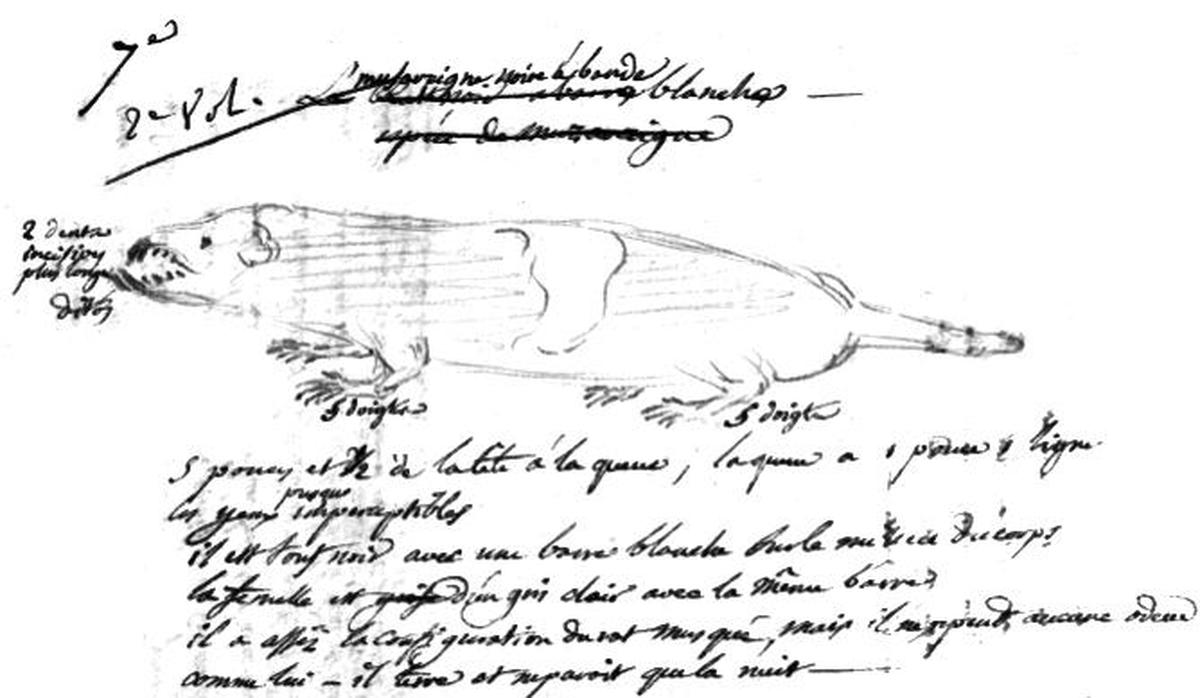 7e
2e Vol.
musaraigne noire à bande
Le blanche —
espèce de musaraigne
2 dents
incisives
plus longues
5 doigts
5 doigts
5 pouces et 1/2 de la tête à la queue, la queue a 1 pouce 1 ligne
presque
les yeux imperceptibles
il est tout noir avec une barre blanche sur le milieu du corps
la femelle est d'un gris clair avec la même barre
il a assez la configuration du rat musqué, mais il ne répend aucune odeur
comme lui — il terre et ne paroit que la nuit —